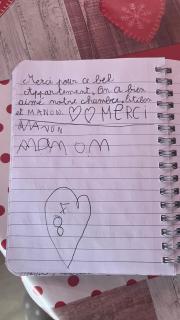 Merci pour ce bel
Appartement. On a bien
aimé notre chambre.
et MANON. MERCI
MANON